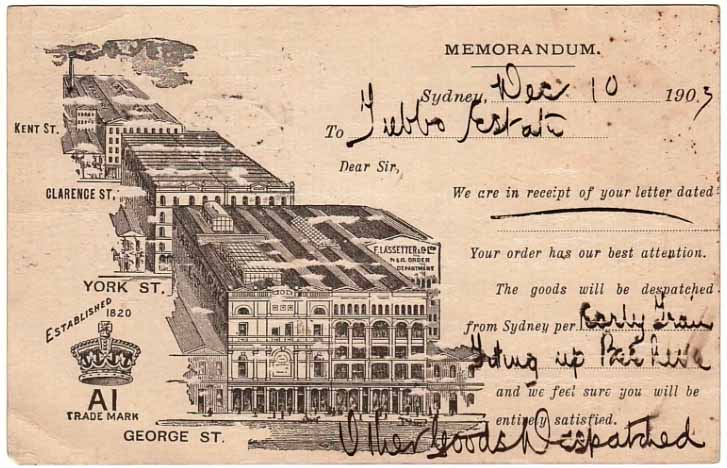 MEMORANDUM.
Sydney, Dec 10 1903
To Tubbo Estate
Dear Sir,
We are in receipt of your letter dated
Your order has our best attention.
The goods will be despatched
from Sydney per Early Train
up
and we feel sure you will be
entirely satisfied.
Other Goods Despatched
KENT ST.
CLARENCE ST.
F. LASSETTER & CO LTD
MAIL ORDER
DEPARTMENT
YORK ST.
ESTABLISHED
1820
A1
TRADE MARK
GEORGE ST.